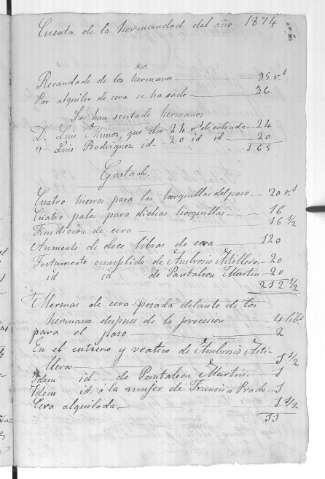 Cuenta de la hermandad del año 1874
Recaudado de los hermanos 95 rs
Por alquiler de cera se ha sacado 26
Se han sentado hermanos
D. Luis Muñoz que dio 24 rs de entrada 24
" Luis Rodriguez id 20 id id 20
165
Gastado
Cuatro hierros para las horquillas del paso 20 rs
Cuatro palos para dichas horquillas 16
Rendición de cera 16 1/2
Aumento de doce libras de cera 120
Testamento cumplido de Ambrosio 20
id id de Pantaleon Martin 20
212 1/2
Mermas de cera pesada delante de los
hermanos despues de la procesion
para el paso 2
En el entierro y
de Ambrosio
1 1/2
Idem id de Pantaleon Martin 1
Idem id á la mujer de Francisco Prado 1
Cera alquilada 1 1/2
11